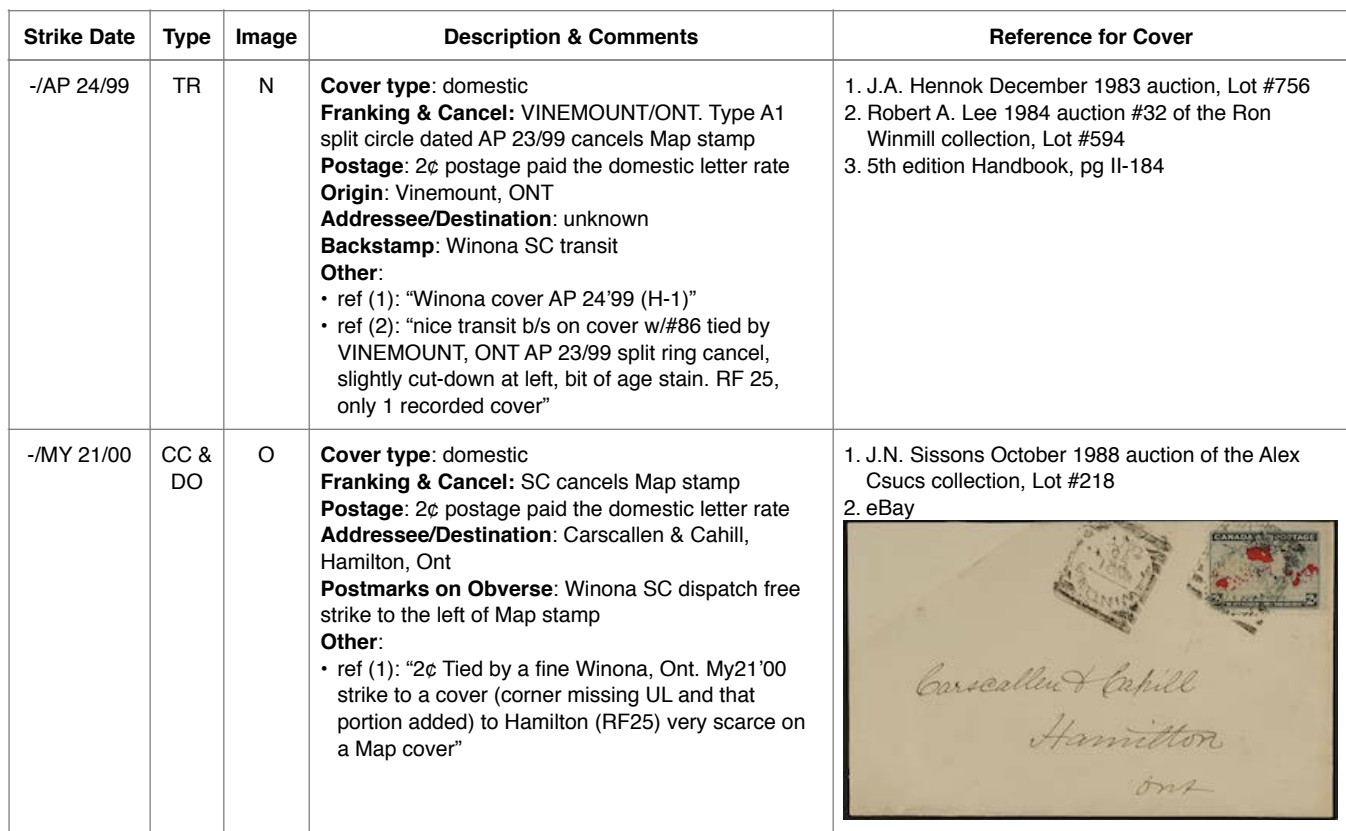 Strike Date Type Image Description & Comments Reference for Cover
-/AP 24/99 TR N
Cover type: domestic
Franking & Cancel: VINEMOUNT/ONT. Type A1
split circle dated AP 23/99 cancels Map stamp
Postage: 2¢ postage paid the domestic letter rate
Origin: Vinemount, ONT
Addressee/Destination: unknown
Backstamp: Winona SC transit
Other:
• ref (1): “Winona cover AP 24’99 (H-1)”
• ref (2): “nice transit b/s on cover w/#86 tied by
VINEMOUNT, ONT AP 23/99 split ring cancel,
slightly cut-down at left, bit of age stain. RF 25,
only 1 recorded cover”
1. J.A. Hennok December 1983 auction, Lot #756
2. Robert A. Lee 1984 auction #32 of the Ron
Winmill collection, Lot #594
3. 5th edition Handbook, pg II-184
-/MY 21/00 CC & DO O
Cover type: domestic
Franking & Cancel: SC cancels Map stamp
Postage: 2¢ postage paid the domestic letter rate
Addressee/Destination: Carscallen & Cahill,
Hamilton, Ont
Postmarks on Obverse: Winona SC dispatch free
strike to the left of Map stamp
Other:
• ref (1): “2¢ Tied by a fine Winona, Ont. My21’00
strike to a cover (corner missing UL and that
portion added) to Hamilton (RF25) very scarce on
a Map cover”
1. J.N. Sissons October 1988 auction of the Alex
Csucs collection, Lot #218
2. eBay
CANADA POSTAGE
Carscallen & Cahill
Hamilton
Ont